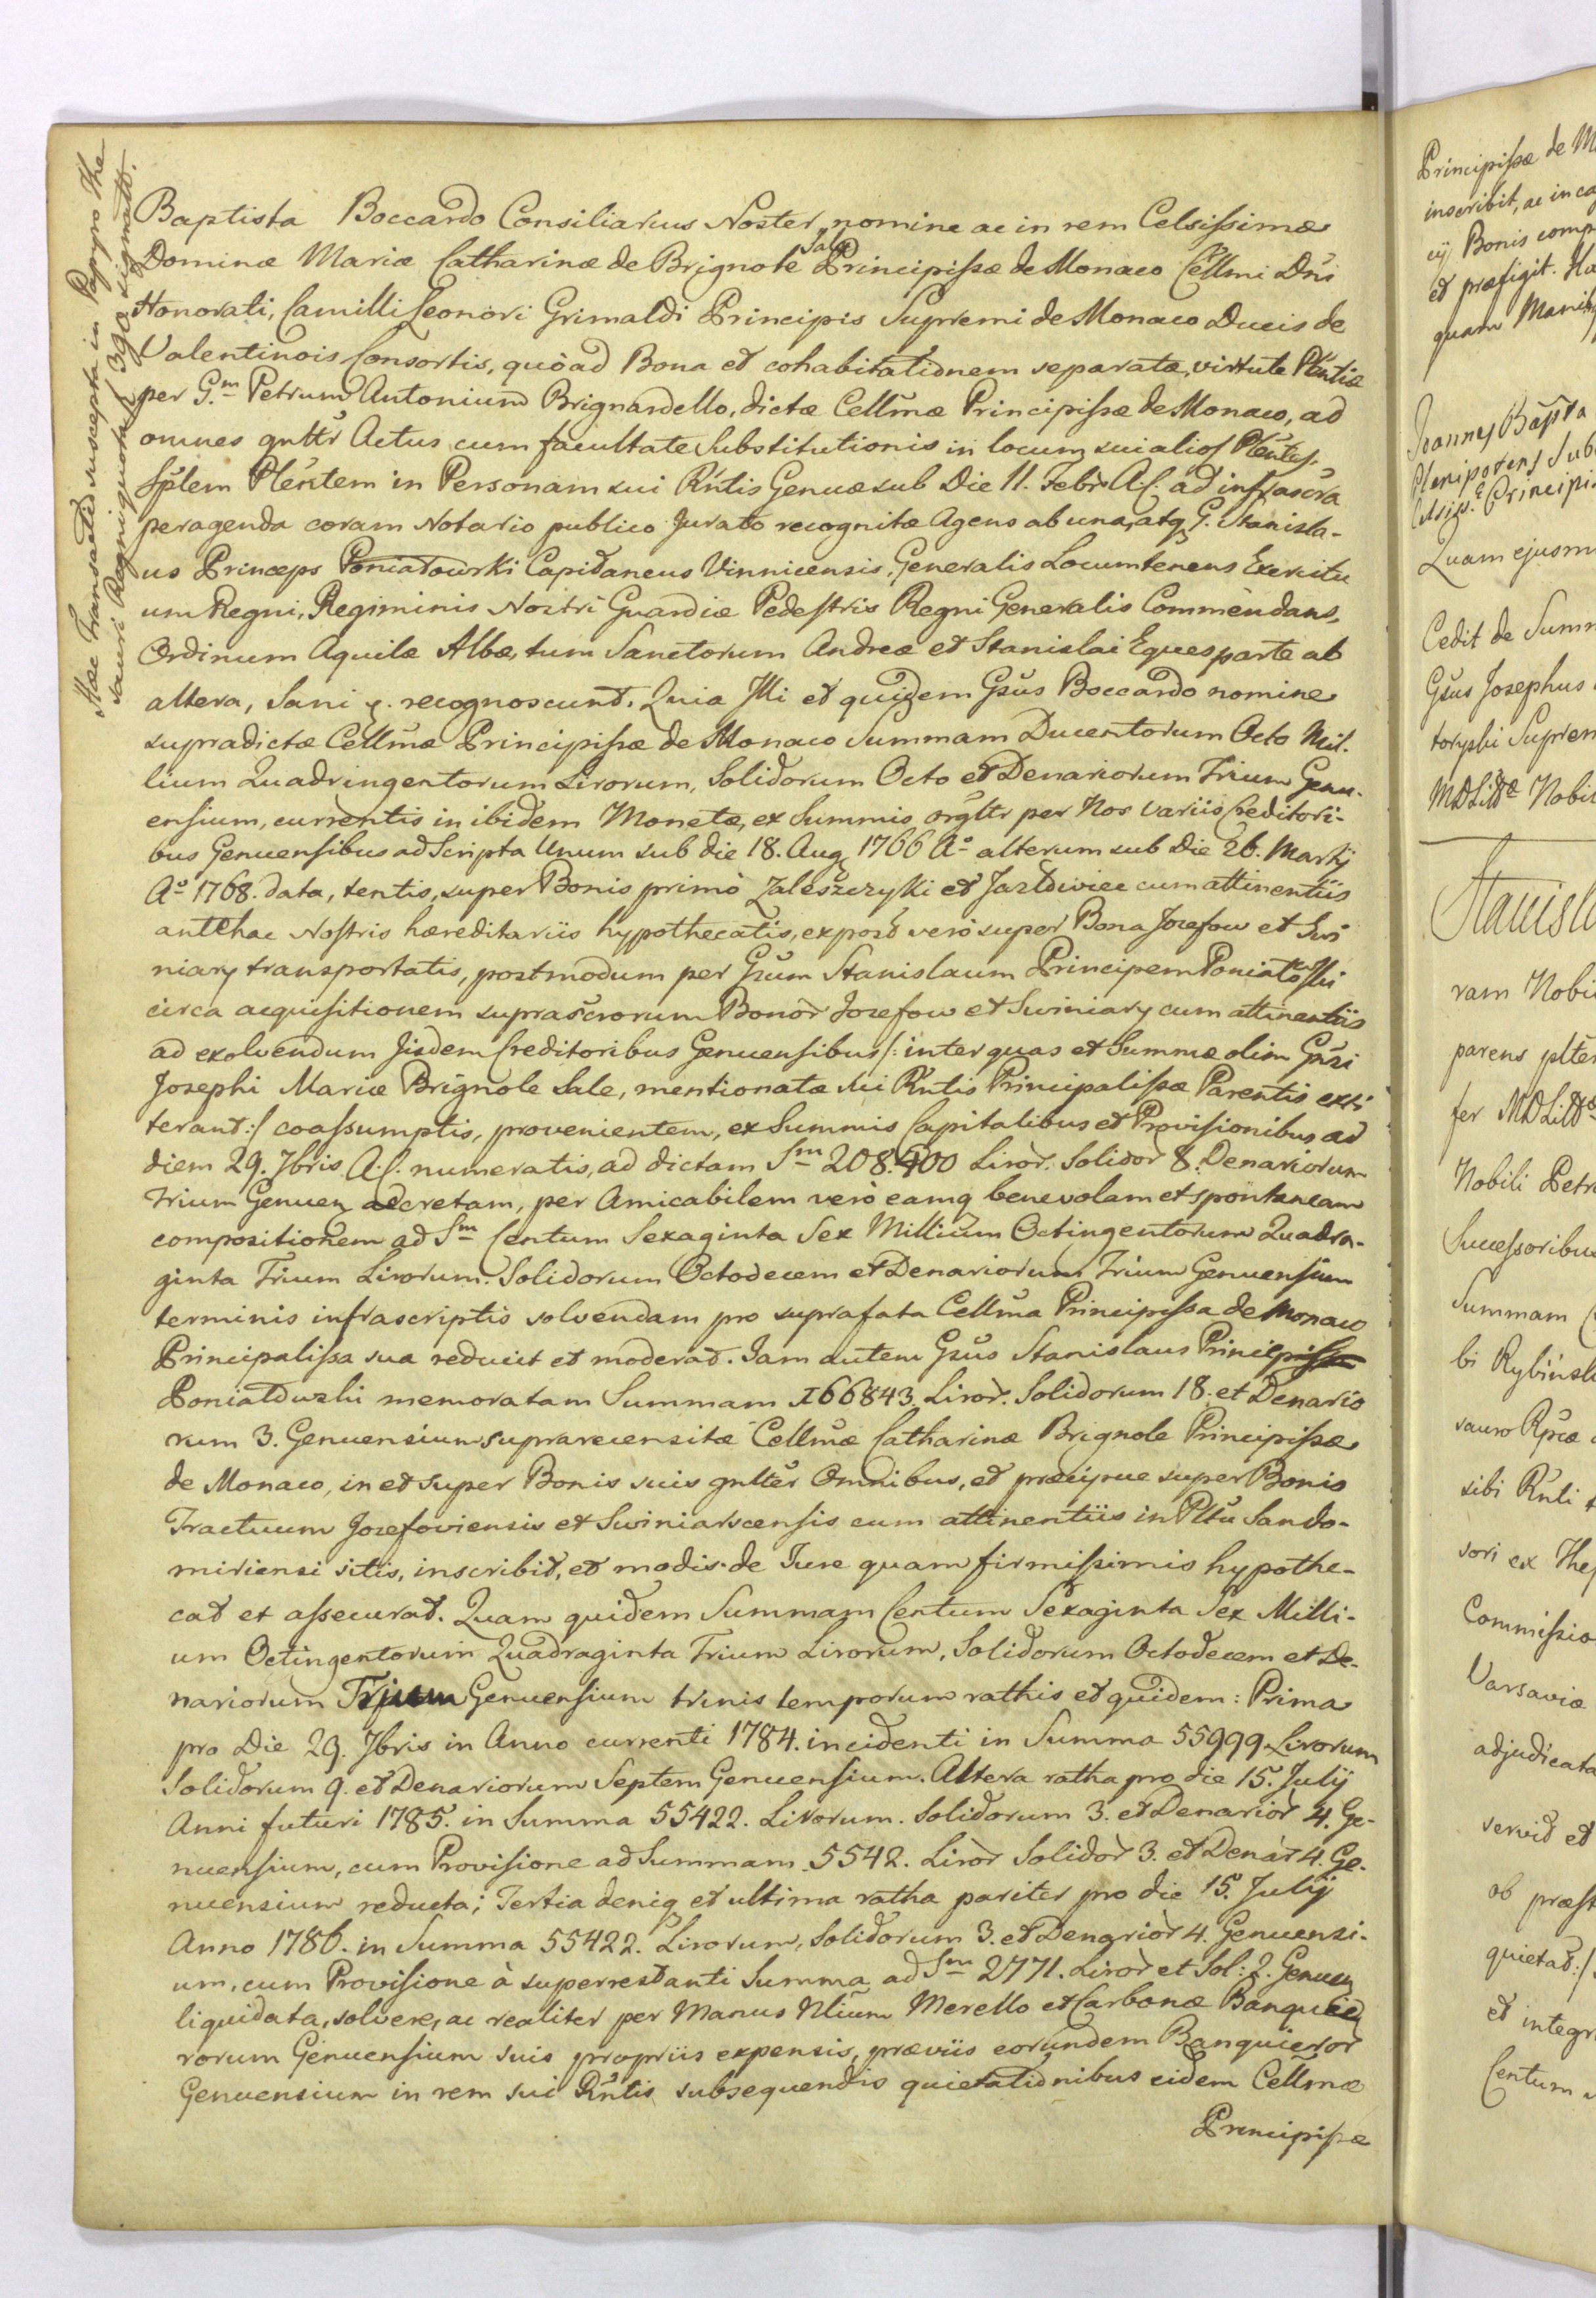 Hæc Transactio suscepta in Papyro The-
sauri Regni quotæ 390 sigmatt.
Baptista Boccardo Consiliarius Noster, nomine ac in rem Celsissimæ
Dominæ Mariæ Catharinæ de Brignole Sale Principissæ de Monaco Cellmi Dñi
Honorati, Camilli Leonori Grimaldi Principis Supremi de Monaco Ducis de
Valentinois Consortis, quòad Bona et cohabitationem separatæ, virtute Plentiæ
per G.m Petrum Antonium Brignardello, dictæ Cellmæ Principissæ de Monaco, ad
omnes gnltr Actus cum facultate Substitutionis in locum sui alios Plentes,
Splem Plentem in Personam sui Rntis Genuæ sub Die 11. Febr. A. C. ad infrascra
peragenda coram Notario publico Jurato recognitæ Agens ab una, atq G. Stanisla-
us Princeps Poniatowski Capitaneus Vinnicensis, Generalis Locumtenens Exercitu
um Regni, Regiminis Nostri Guardiæ Pedestris Regni Generalis Commendans,
Ordinum Aquilæ Albæ, tum Sanctorum Andreæ et Stanislai Eques parte ab
altera, Sani &. recognoscunt. Quia Illi et quidem Gsus Boccardo nomine
supradictæ Cellmæ Principissæ de Monaco Summam Ducentorum Octo Mil-
lium Quadringentorum Lirorum, Solidorum Octo et Denariorum Trium Genu-
ensium, currentis in ibidem Monetæ, ex Summis orgltr per Nos variis Creditori-
bus Genuensibus ad Scripta Unum sub die 18. Aug 1766 Aº alterum sub Die 26. Martij
Aº 1768. data, tentis, super Bonis primò Zaleszczyki et Jazłowiec cum attinentiis
antehac Nostris hæreditariis hypothecatis, expost verò super Bona Jozefow et Swi
niary transportatis, postmodum per Gsum Stanislaum Principem Poniatowski
circa acquisitionem suprascrorum Bonor Jozefow et Swiniary cum attinentiis
ad exolvendum Jisdem Creditoribus Genuensibus /: inter quas et Summæ olim Gsi
Josephi Mariæ Brignole Sale, mentionatæ sui Rntis Principalissæ Parentis exti
terant :/ coassumptis, provenientem, ex Summis Capitalibus et Provisionibus ad
diem 29. 7bris A. C. numeratis, ad dictam Sm 208.400 Liror. Solidor 8. Denariorum
Trium Genuen accretam, per Amicabilem verò eamq benevolam et spontaneam
compositionem ad Sm Centum Sexaginta Sex Millium Octingentorum Quadra-
ginta Trium Lirorum. Solidorum Octodecem et Denariorum Trium Genuensium
terminis infrascriptis solvendam pro suprafata Cellma Principissa de Monaco
Principalissa sua reducit et moderat. Jam autem Gsus Stanislaus Princeps
Poniatowski memoratam Summam 166843. Liror. Solidorum 18. et Denario
rum 3. Genuensium suprarecensitæ Cellmæ Catharinæ Brignole Principissæ
de Monaco, in et super Bonis suis gnlter Omnibus, et præcipue super Bonis
Tractuum Jozefoviensis et Swiniarscensis cum attinentiis in Pltu Sando-
miriensi sitis, inscribit, et modis de Jure quam firmissimis hypothe-
cat et assecurat. Quam quidem Summam Centum Sexaginta Sex Milli-
um Octingentorum Quadraginta Trium Lirorum, Solidorum Octodecem et De-
nariorum Trium Genuensium trinis temporum rathis et quidem: Prima
pro Die 29. 7bris in Anno currenti 1784. incidenti in Summa 55999. Lirorum
Solidorum 9. et Denariorum Septem Genuensium. Altera ratha pro die 15. Julij
Anni futuri 1785. in Summa 55422. Lirorum. Solidorum 3. et Denarior 4. Ge-
nuensium, cum Provisione ad Summam 5542. Liror Solidor 3. et Denar 4. Ge-
nuensium reducta; Tertia deniq et ultima ratha pariter pro die 15. Julij
Anno 1786. in Summa 55422. Lirorum, Solidorum 3. et Denarior 4. Genuensi-
um, cum Provisione à superrestanti Summa ad Sm 2771. Liror et Sol: 2. Genuen
liquidata, solvere, ac realiter per Manus Nlium Merello et Carbonæ Banquie
rorum Genuensium suis propriis expensis, præviis eorundem Banquieror
Genuensium in rem sui Rntis subsequendis quietationibus eidem Cellmæ
Principissæ
Principissæ de M
inscribit, ac in ca
cij Bonis comp
et præfigit. Ha
quam Manib
Joannes Bapta
Plenipotens Sub
Celsiss.æ Principi
Quam ejusm
Cedit de Summ
Gsus Josephus
toryski Suprem
MDLitt Nobil
Stanisl
ram Nobi
parens plte
fer MDLitt
Nobili Petr
Successoribus
Summam C
bi Rybinsk
sauro Rpcæ
sibi Rnti
sori ex The
Commissio
Varsaviæ
adjudicata
servit et
ob præst
quietat :/
et integr
Centum